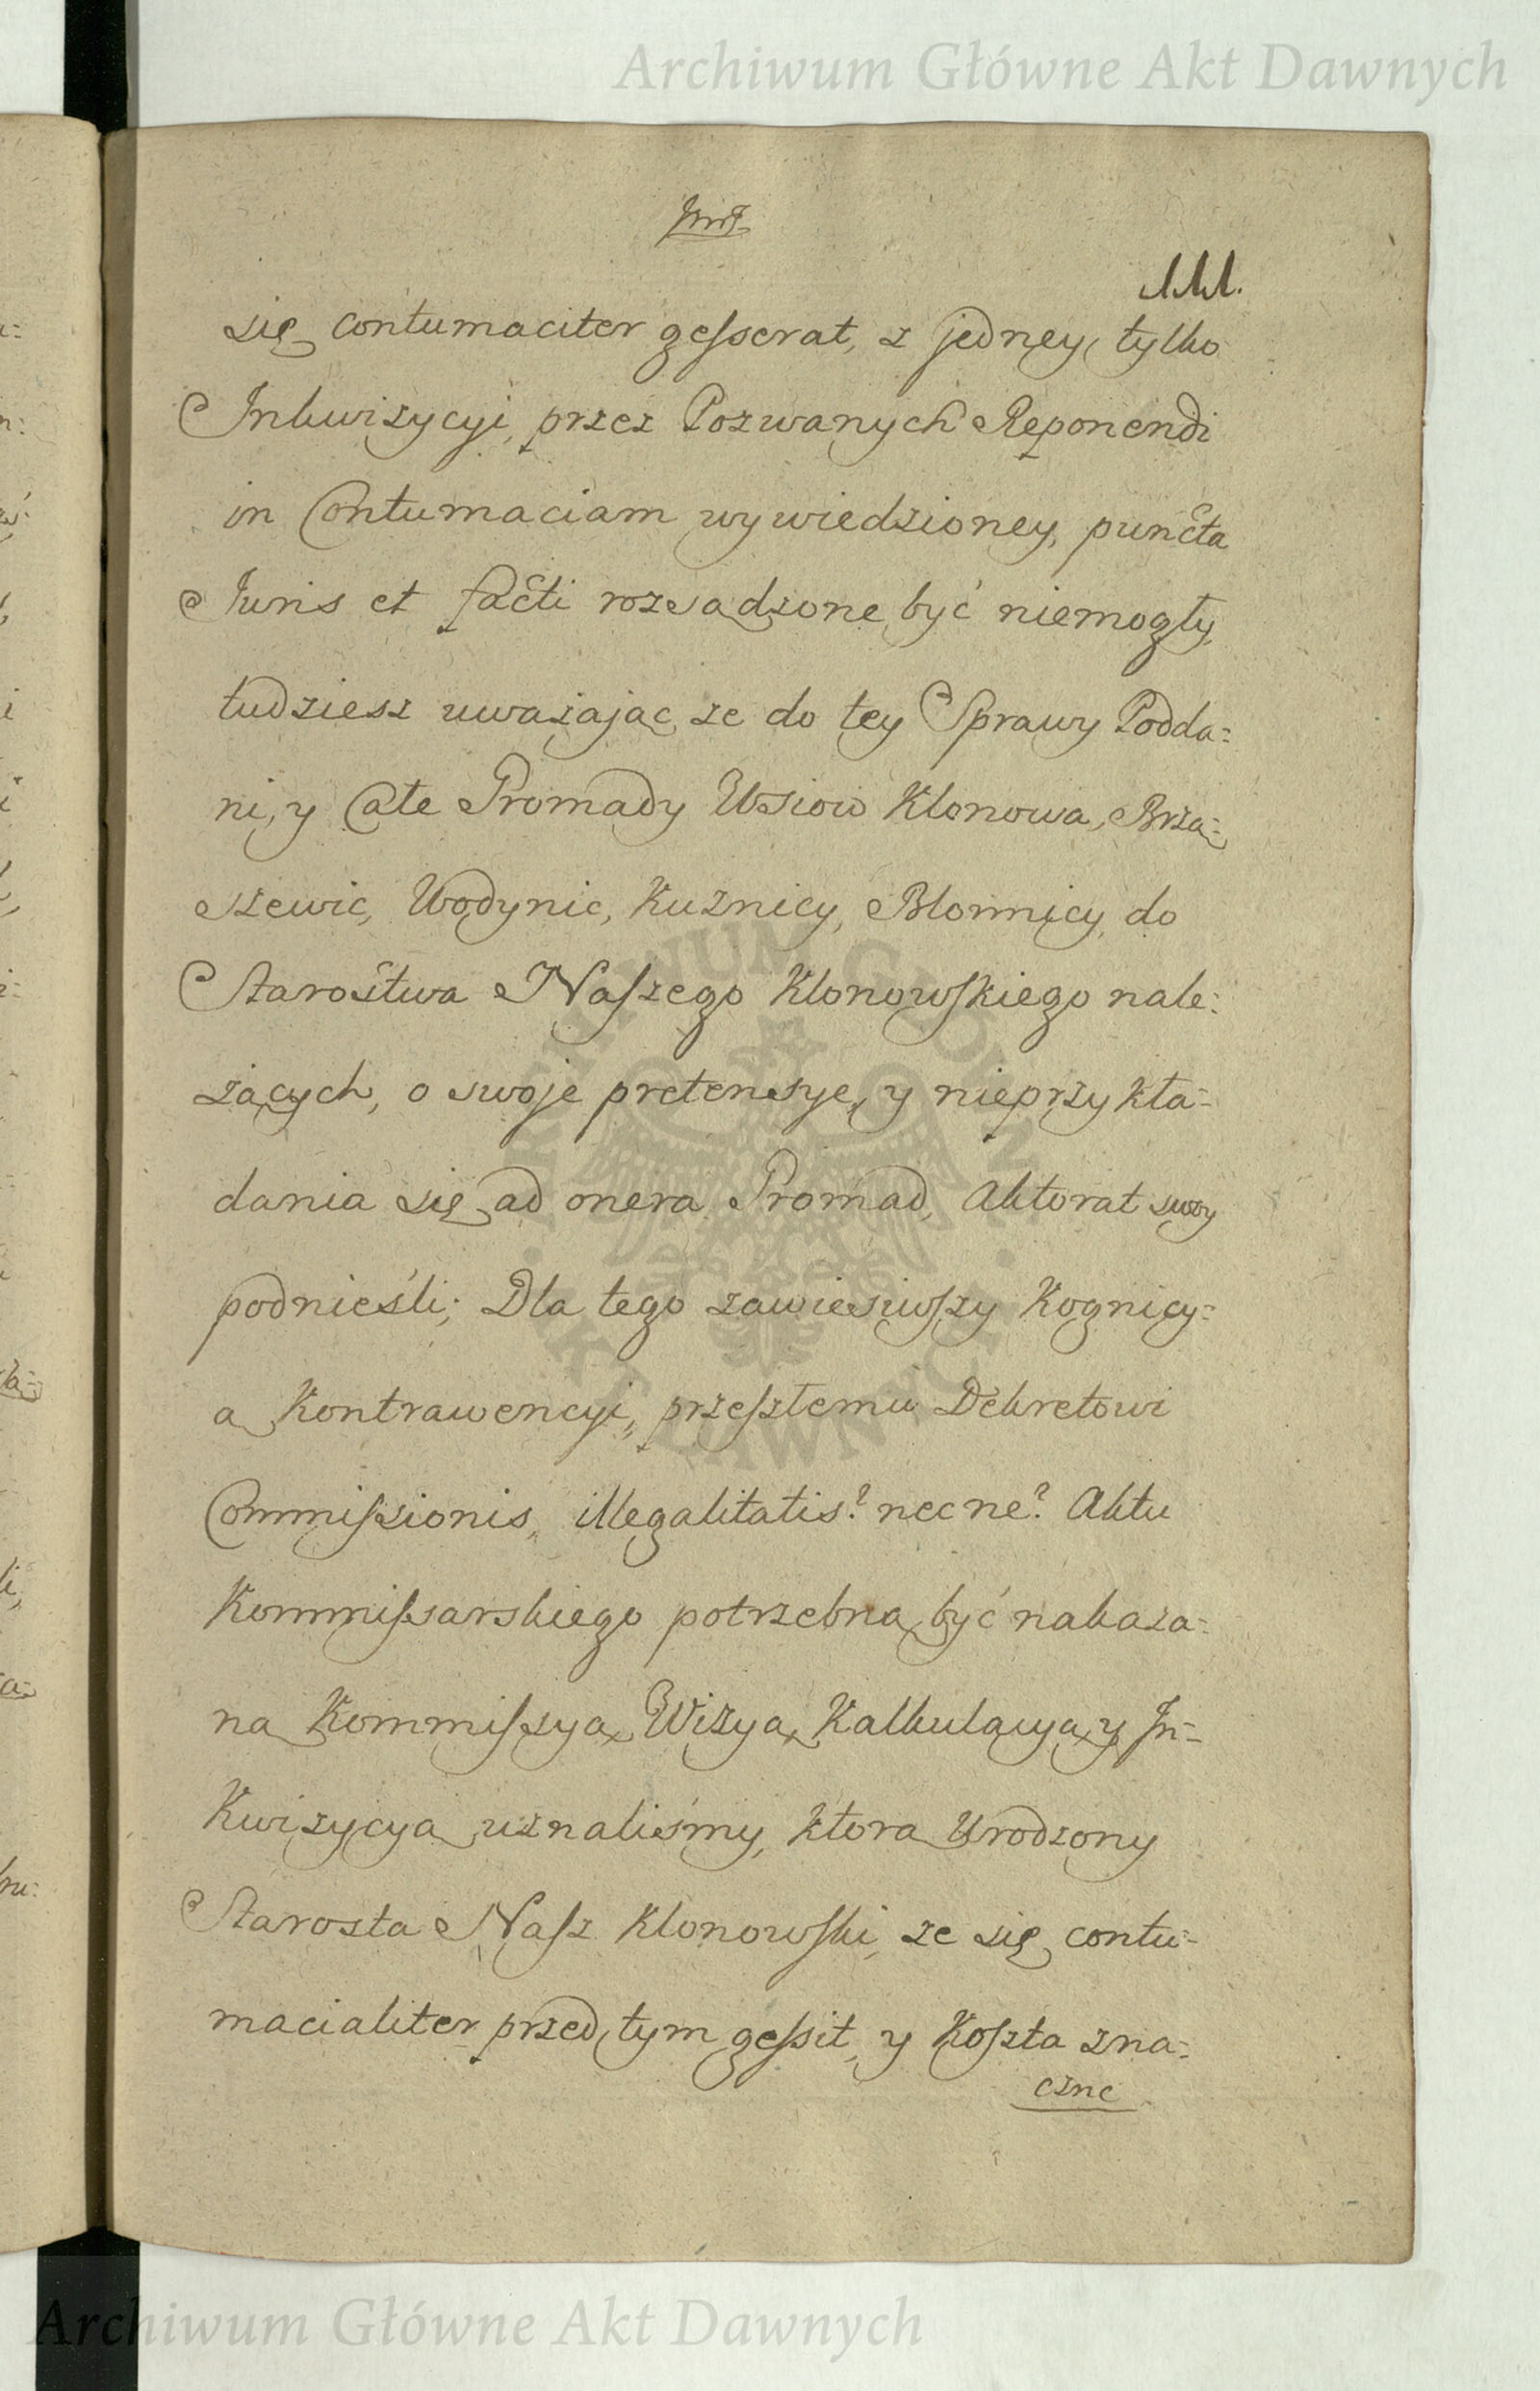 Archiwum Główne Akt Dawnych
111.
się contumaciter gesserat, z jedney tylko
Inkwizycyi, przez Pozwanych Reponendi
in Contumaciam wywiedzioney, puncta
Iuris et facti rozsądzone być niemogły,
tudziesz uwazając ze do tey Sprawy Podda=
ni, y Całe Gromady Wsiow Klonowa, Brzą=
szewic, Wodynic, Kuznicy, Blonnicy, do
Starostwa Naszego Klonowskiego nale=
zących, o swoje pretensye, y nieprzykła=
dania się ad onera Gromad, Aktorat swoy
podnieśli; Dla tego zawiesiwszy Kognicy=
ą Kontrawencyi, przeszłemu Dekretowi
Commissionis, illegalitatis? nec ne? Aktu
Kommissarskiego potrzebną być nakaza=
ną Kommissyą, Wizyą, Kalkulacyą, y In=
Kwizycyą uznaliśmy, ktorą Urodzony
Starosta Nasz Klonowski, ze się contu=
macialiter przed tym gessit, y Koszta zna=
czne
Archiwum Główne Akt Dawnych